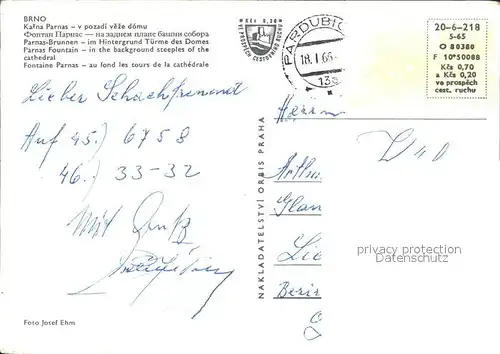 BRNO
Kašna Parnas – v pozadí věže dómu
Фонтан Парнас — на заднем плане башни собора
Parnas-Brunnen – im Hintergrund Türme des Domes
Parnas Fountain – in the background steeples of the
cathedral
Fontaine Parnas – au fond les tours de la cathédrale
Lieber Schachfreund
Auf 45.) 6758
46.) 33-32
Mit Gruß
Foto Josef Ehm
NAKLADATELSTVÍ ORBIS PRAHA
Kčs 0,20
VE PROSPĚCH CESTOVNÍHO RUCHU
PARDUBIC
18.1.66
20-6-218
S-65
O 80380
F 10*50088
Kčs 0,70
a Kčs 0,20
ve prospěch
cest. ruchu
Herrn
D 40
privacy protection
Datenschutz